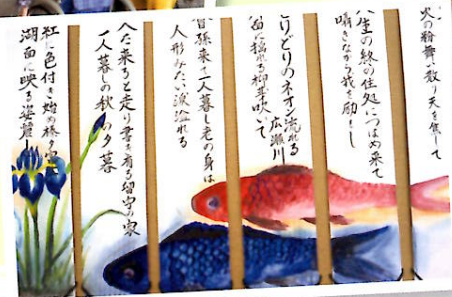 火の粉舞い散り天を焦して
人生の終の住処につばめ来て
囁きながら我を励まし
とりどりのネオン流れる広瀬川
面に揺れる柳芽吹いて
曾孫来て一人暮し老の身は
人形みたい涙溢れる
又来ると走り書き有る留守の家
一人暮しの秋の夕暮
紅に色付き始め
湖面に映る姿